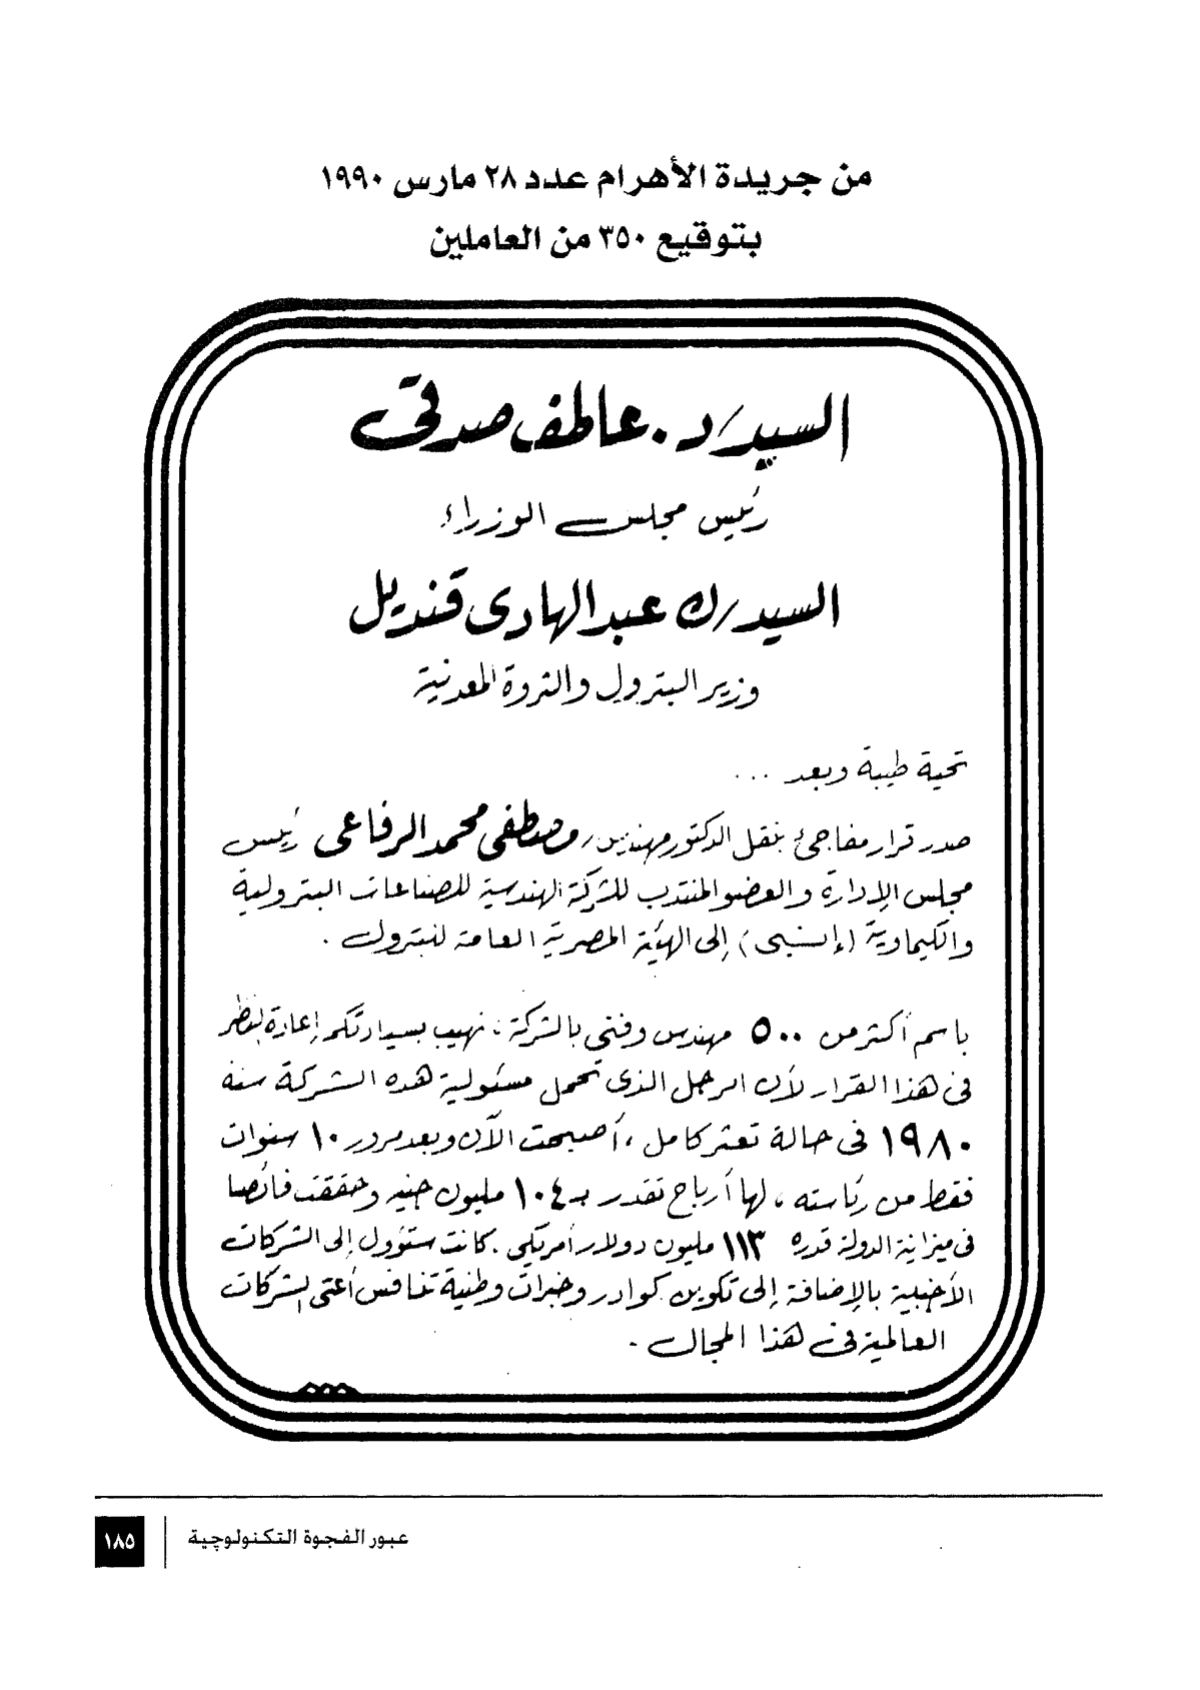 من جريدة الأهرام عدد ٢٨ مارس ١٩٩٠
بتوقيع ٣٥٠ من العاملين
السيد/ د. عاطف صدقى
رئيس مجلس الوزراء
السيد/ ك عبد الهادى قنديل
وزير البترول والثروة المعدنية
تحية طيبة وبعد ...
صدر قرار مفاجئ بنقل الدكتور مهندس/ مصطفى محمد الرفاعى رئيس
مجلس الإدارة والعضو المنتدب للشركة الهندسية للصناعات البترولية
والكيماوية (إنبى) إلى الهيئة المصرية العامة للبترول .
باسم أكثر من ٥٠٠ مهندس وفنى بالشركة ، نهيب بسيادتكم إعادة النظر
فى هذا القرار لأن الرجل الذى تحمل مسئولية هذه الشركة سنة
١٩٨٠ فى حالة تعثر كامل ، أصبحت الآن وبعد مرور ١٠ سنوات
فقط من رئاسته ، لها أرباح تقدر بـ ١٠٤ مليون جنيه وحققت فائضا
فى ميزانية الدولة قدره ١١٣ مليون دولار أمريكى . كانت ستؤول إلى الشركات
الأجنبية بالإضافة إلى تكوين كوادر وخبرات وطنية تنافس أعتى الشركات
العالمية فى هذا المجال .
عبور الفجوة التكنولوچية
١٨٥